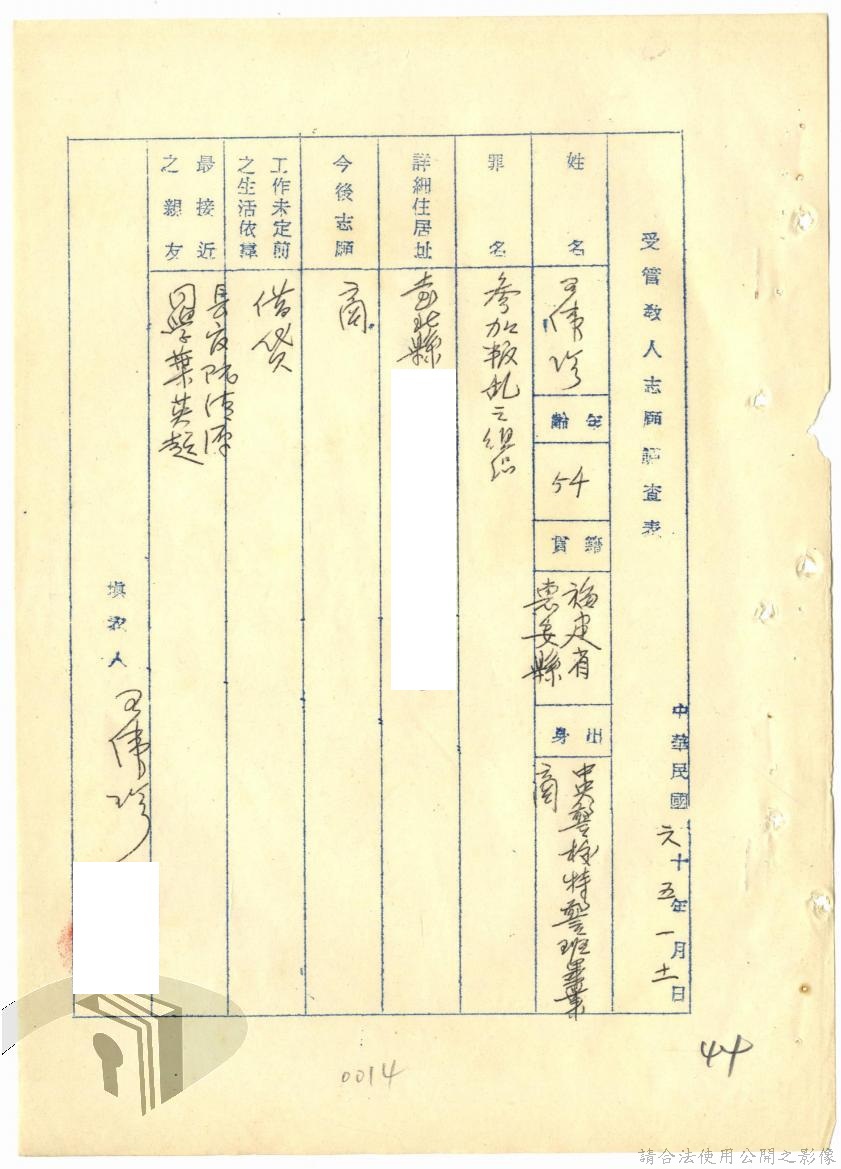 受管教人志願調查表
中華民國六十五年一月十一日
姓名
王偉珍
年齡
54
籍貫
福建省
惠安縣
出身
中央警校特警班畢業
商
罪名
參加叛乱之組织
詳細住居址
台北縣
今後志願
商。
工作未定前
之生活依靠
借贷
最接近
之親友
長官阮清源
同學葉英超
填表人
王偉珍
44
0014
請合法使用公開之影像